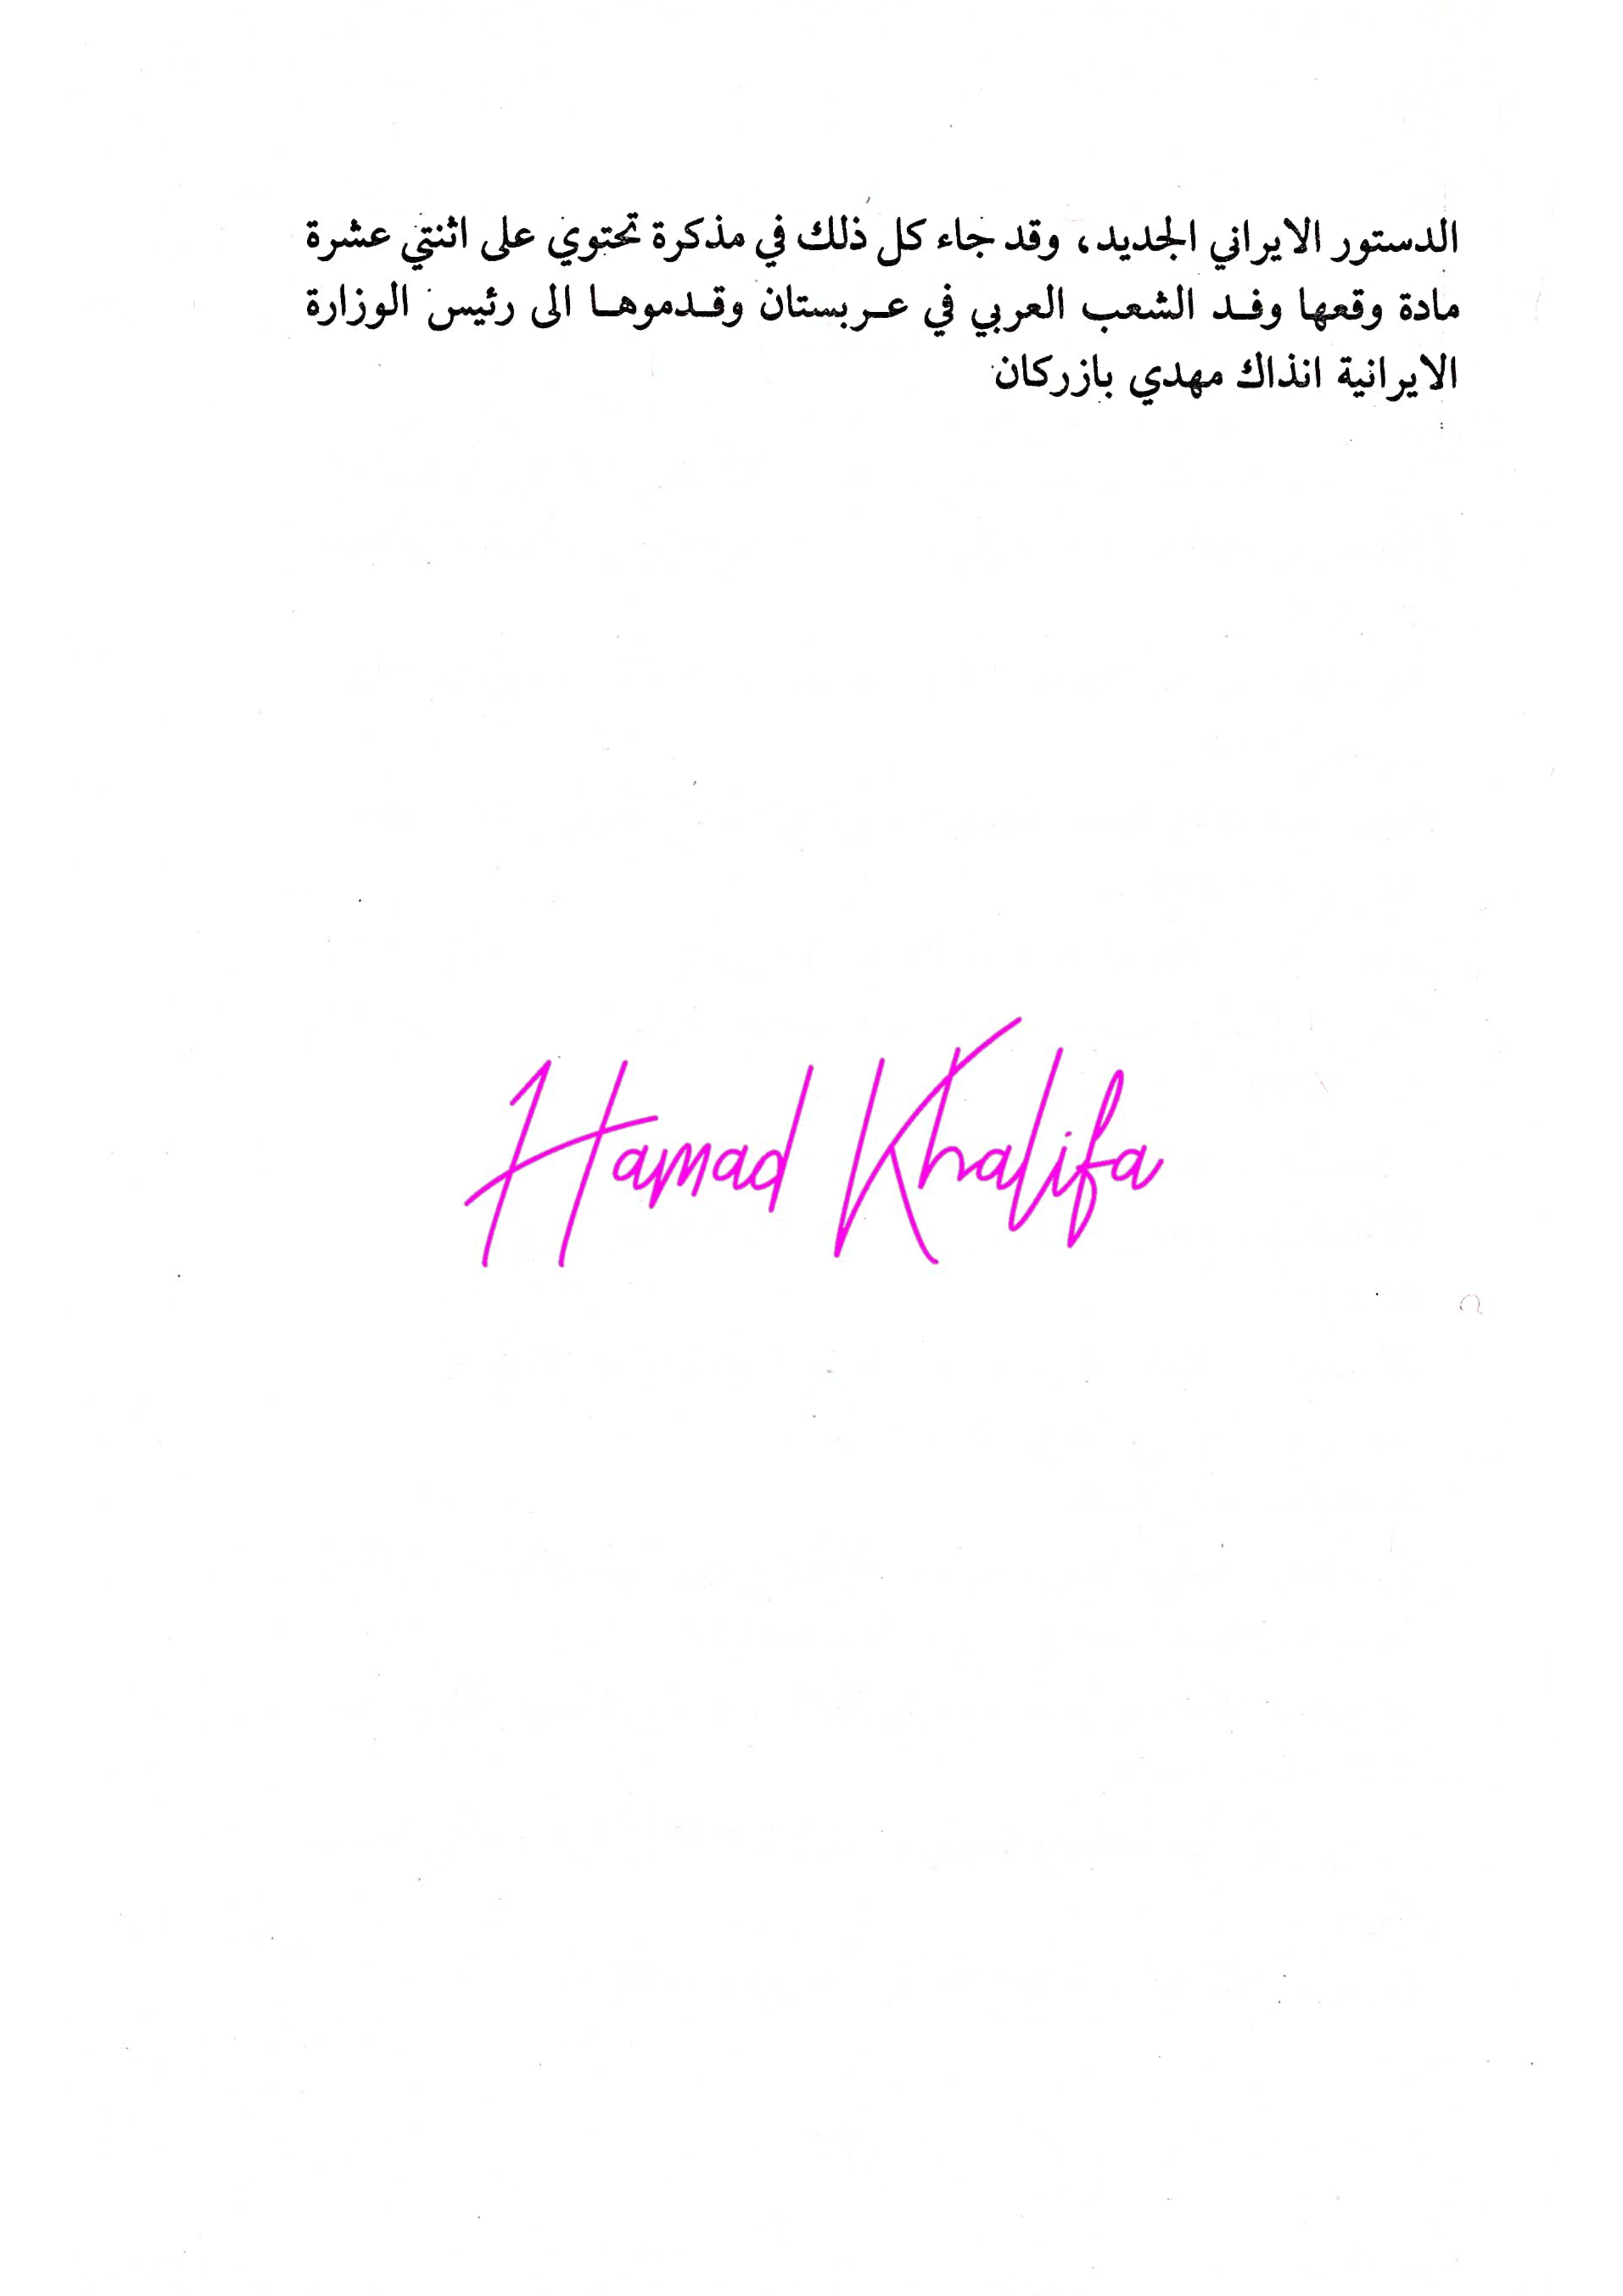 الدستور الايراني الجديد، وقد جاء كل ذلك في مذكرة تحتوي على اثنتي عشرة
مادة وقعها وفد الشعب العربي في عربستان وقدموها الى رئيس الوزارة
الايرانية انذاك مهدي بازركان
Hamad Khalifa